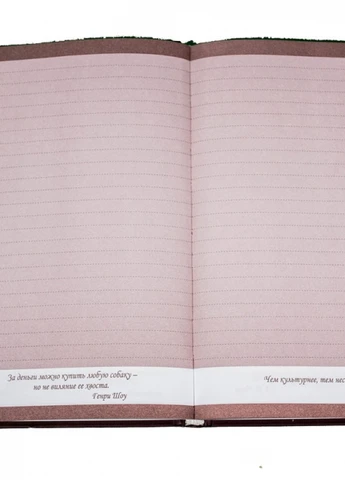 За деньги можно купить любую собаку –
но не виляние ее хвоста.
Генри Шоу
Чем культурнее, тем нес